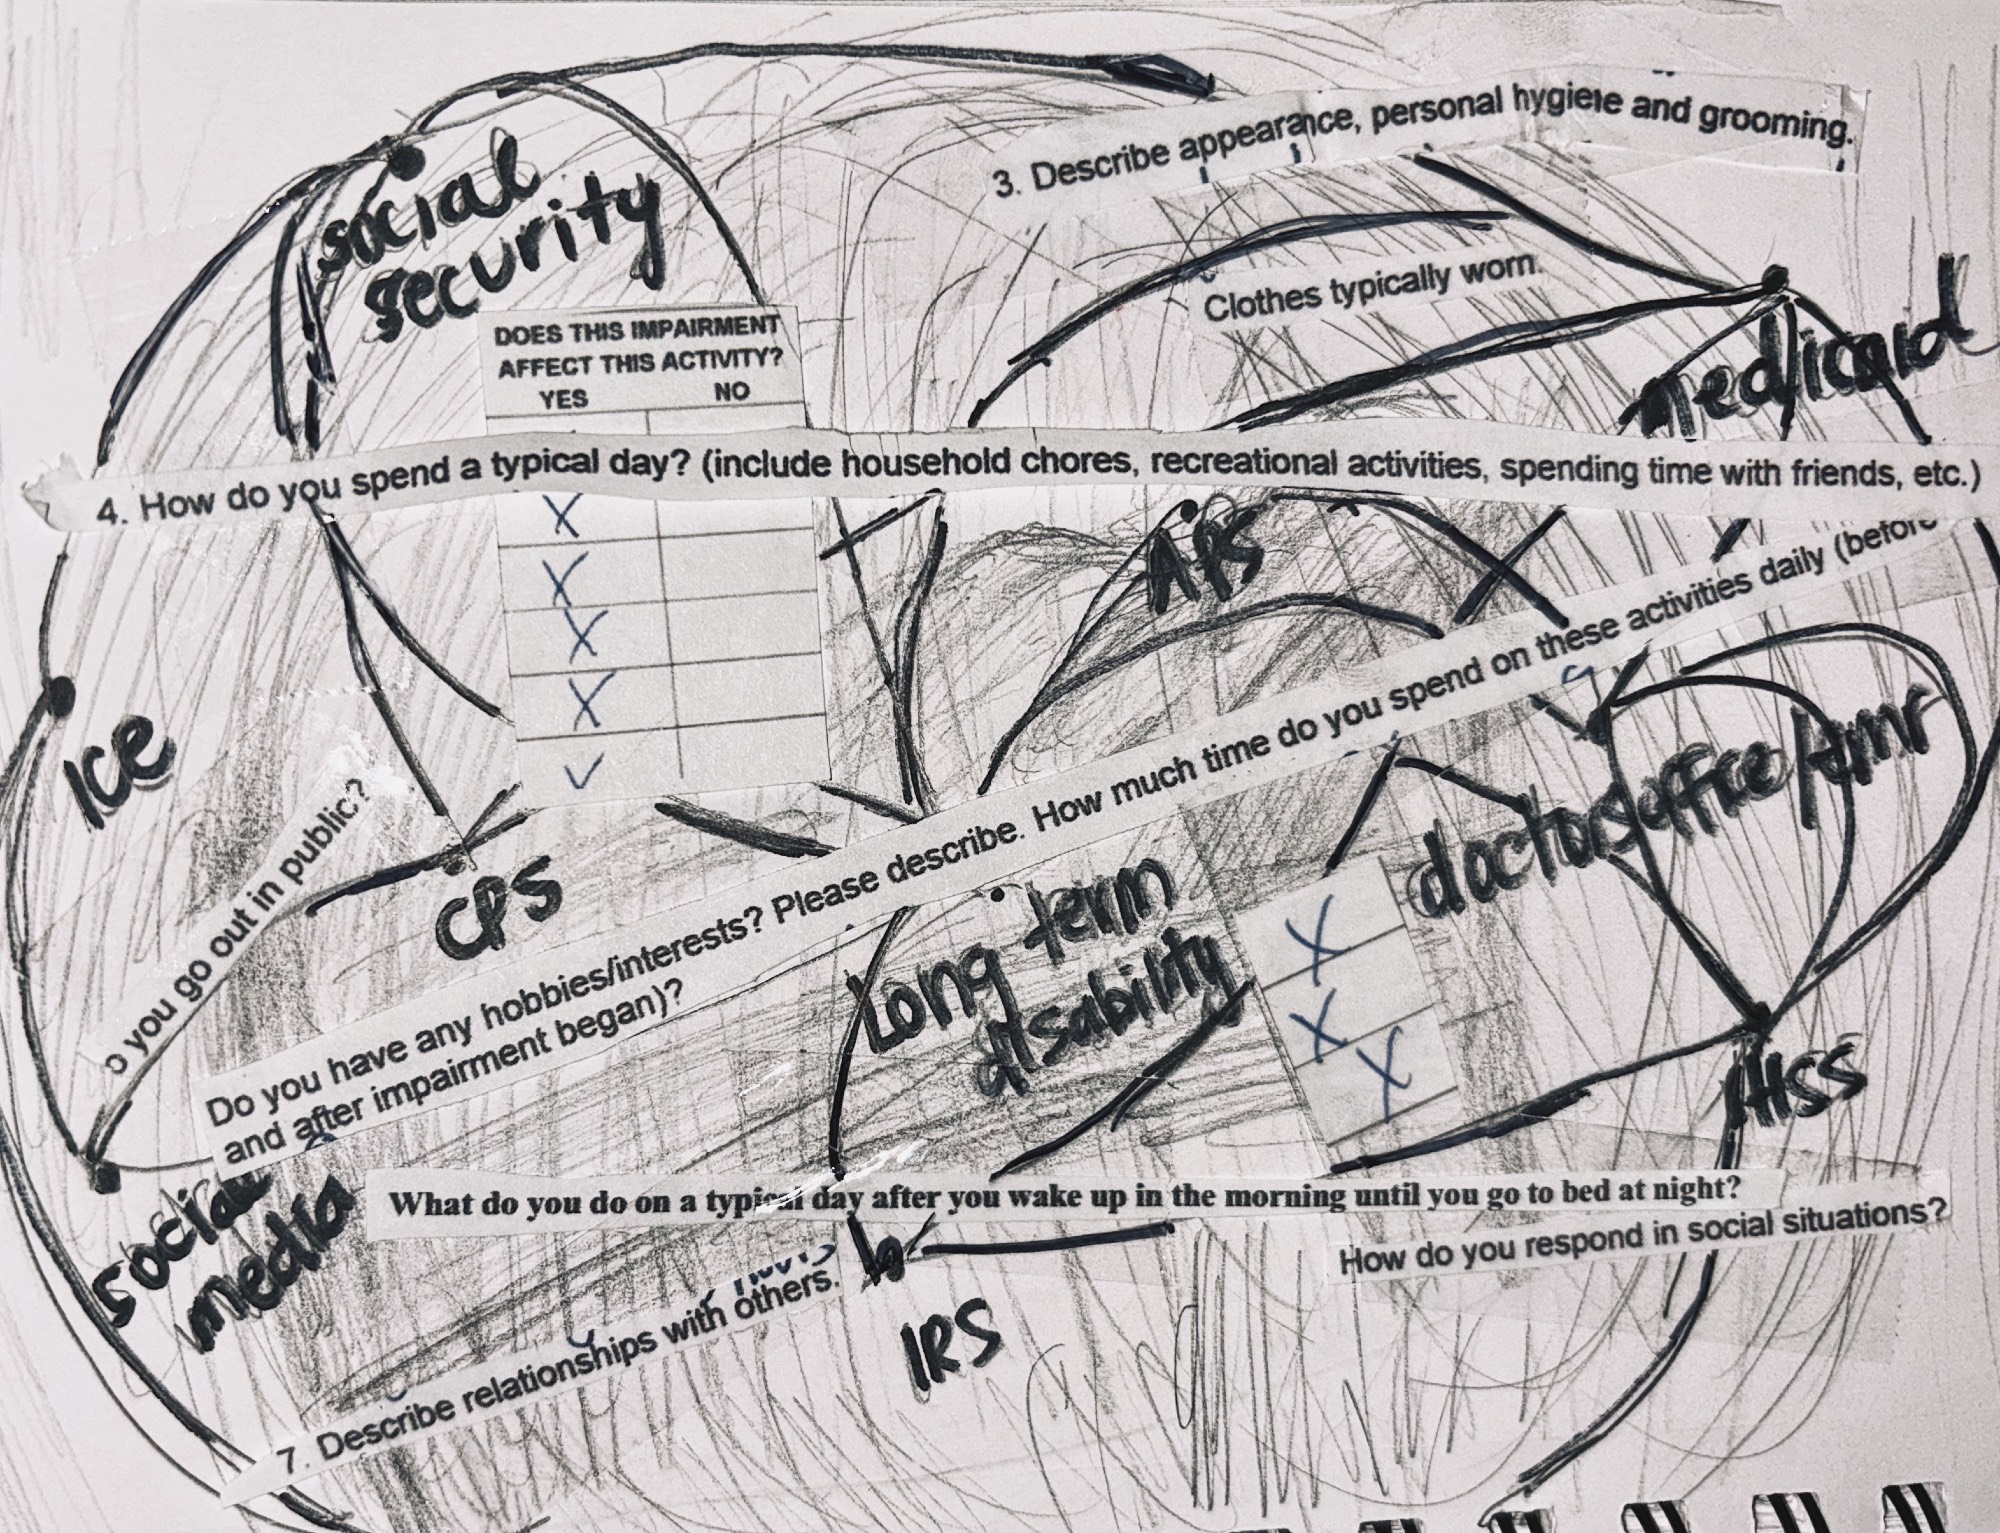 social
security
3. Describe appearance, personal hygiene and grooming.
Clothes typically worn.
medicaid
DOES THIS IMPAIRMENT
AFFECT THIS ACTIVITY?
YES NO
4. How do you spend a typical day? (include household chores, recreational activities, spending time with friends, etc.)
X
X
X
X
✓
APS
ICE
CPS
doctors office/emr
you go out in public?
Do you have any hobbies/interests? Please describe. How much time do you spend on these activities daily (before
and after impairment began)?
Long term
disability
X
X
X
IHSS
social
media
What do you do on a typical day after you wake up in the morning until you go to bed at night?
How do you respond in social situations?
7. Describe relationships with others.
IRS